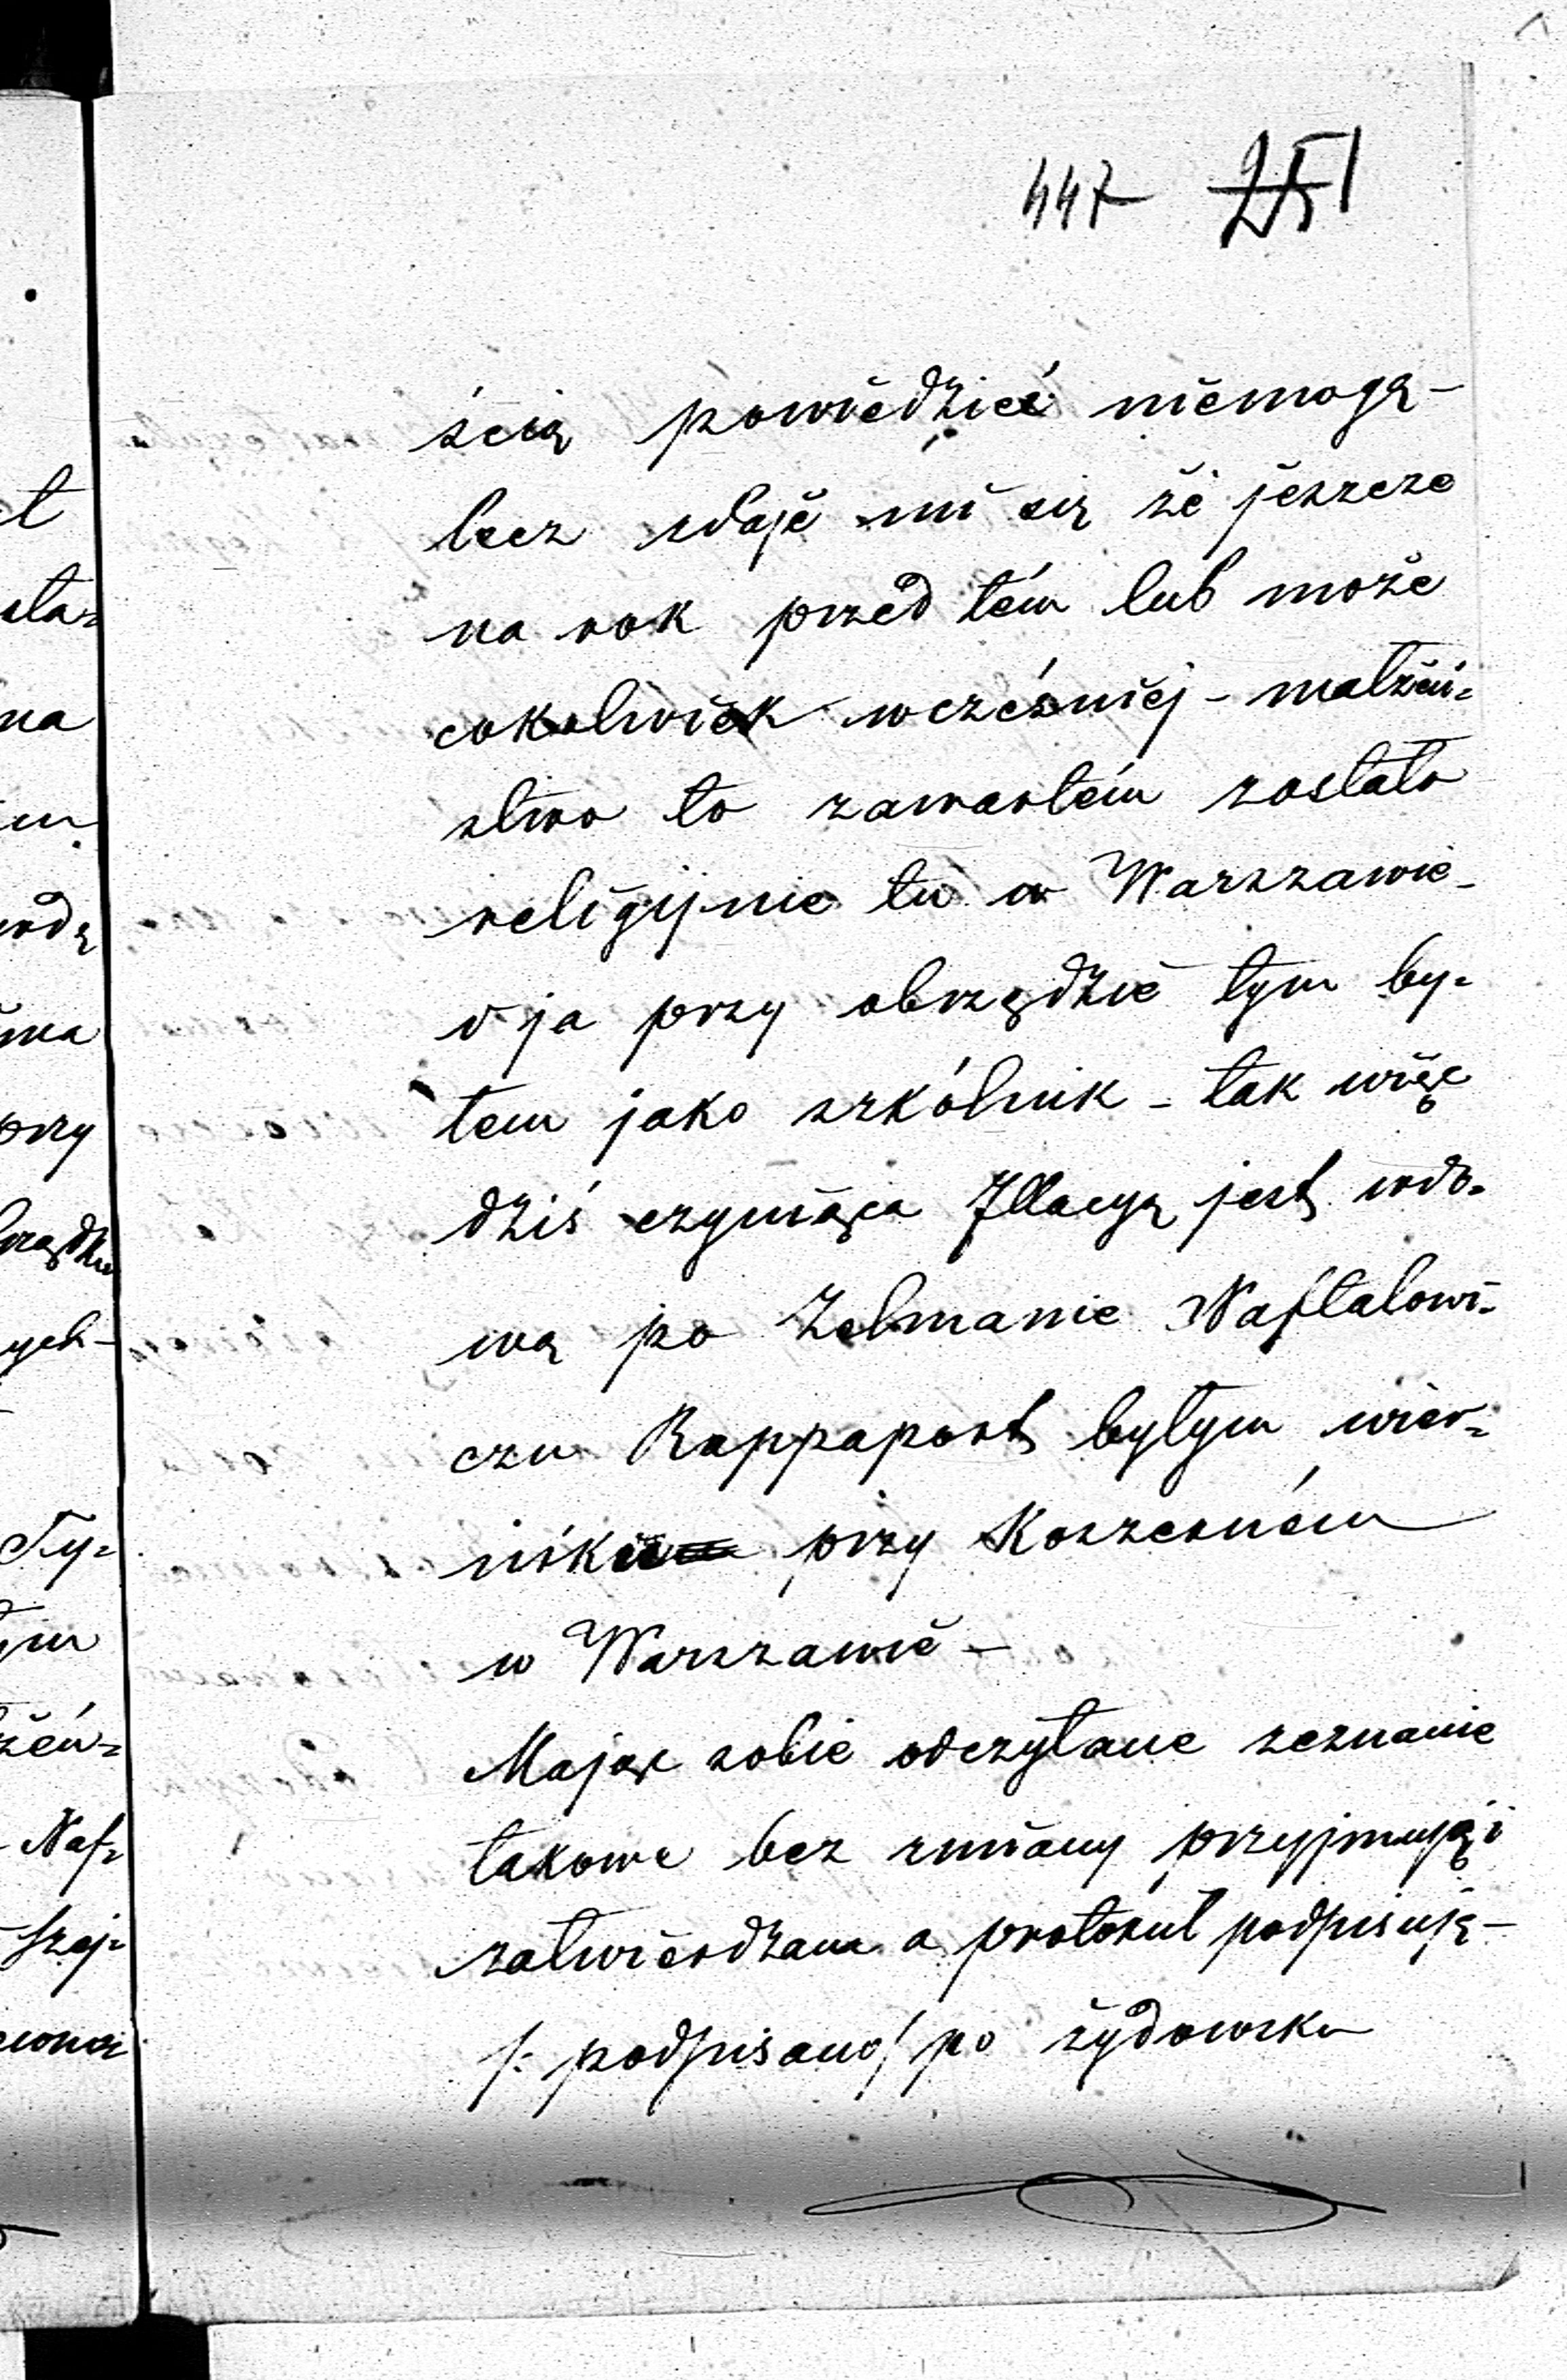 447 251
ścią powiedzieć niemogę-
lecz zdaje mi się że jeszcze
na rok przed tém lub może
cokolwiek wcześniej - małżeń=
stwo to zawartém zostało
religijnie tu w Warszawie-
i ja przy obrzędzie tym by=
łem jako szkólnik - tak więc
dziś czyniąca Illacyą jest wdo=
wą po Zelmanie Naftalowi=
czu Rappaport byłym wier=
niku przy Koszerném
w Warszawie -
Mając sobie odczytane zeznanie
takowe bez zmiany przyjmuję i
zatwierdzam a protokuł podpisuję-
/: podpisano/ po żydowsku